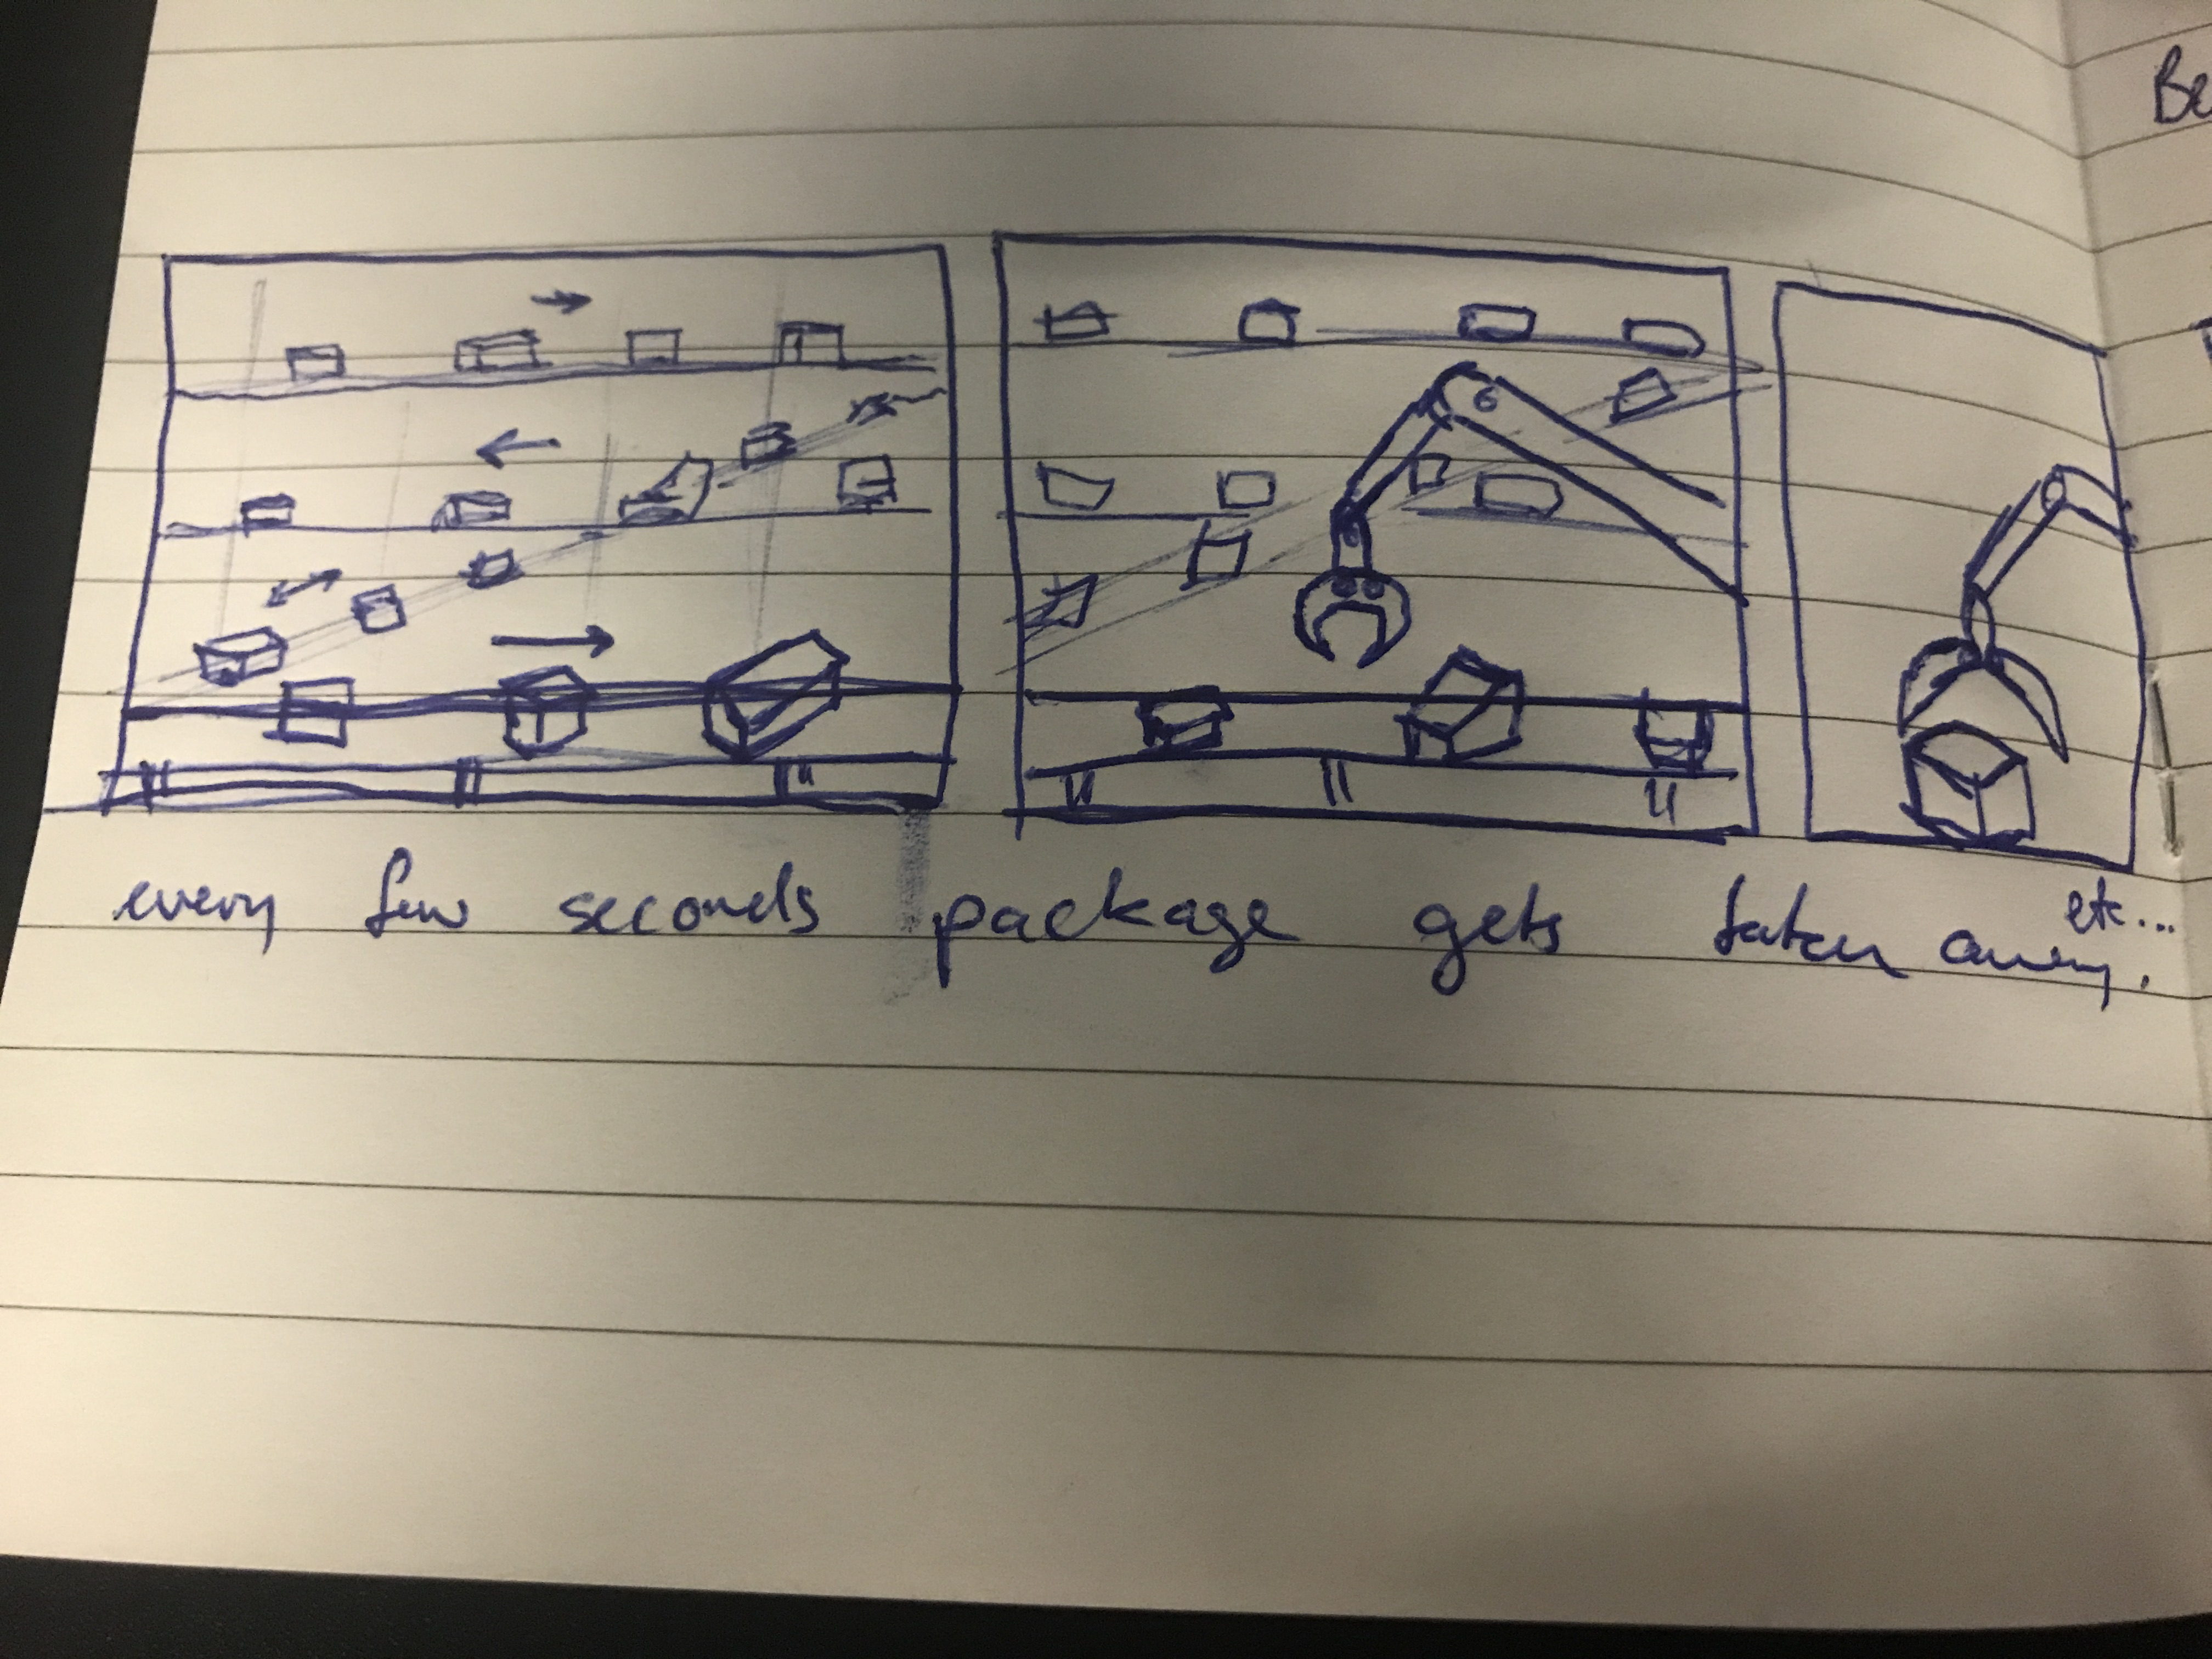 Be
every few seconds package gets taken away.
etc...